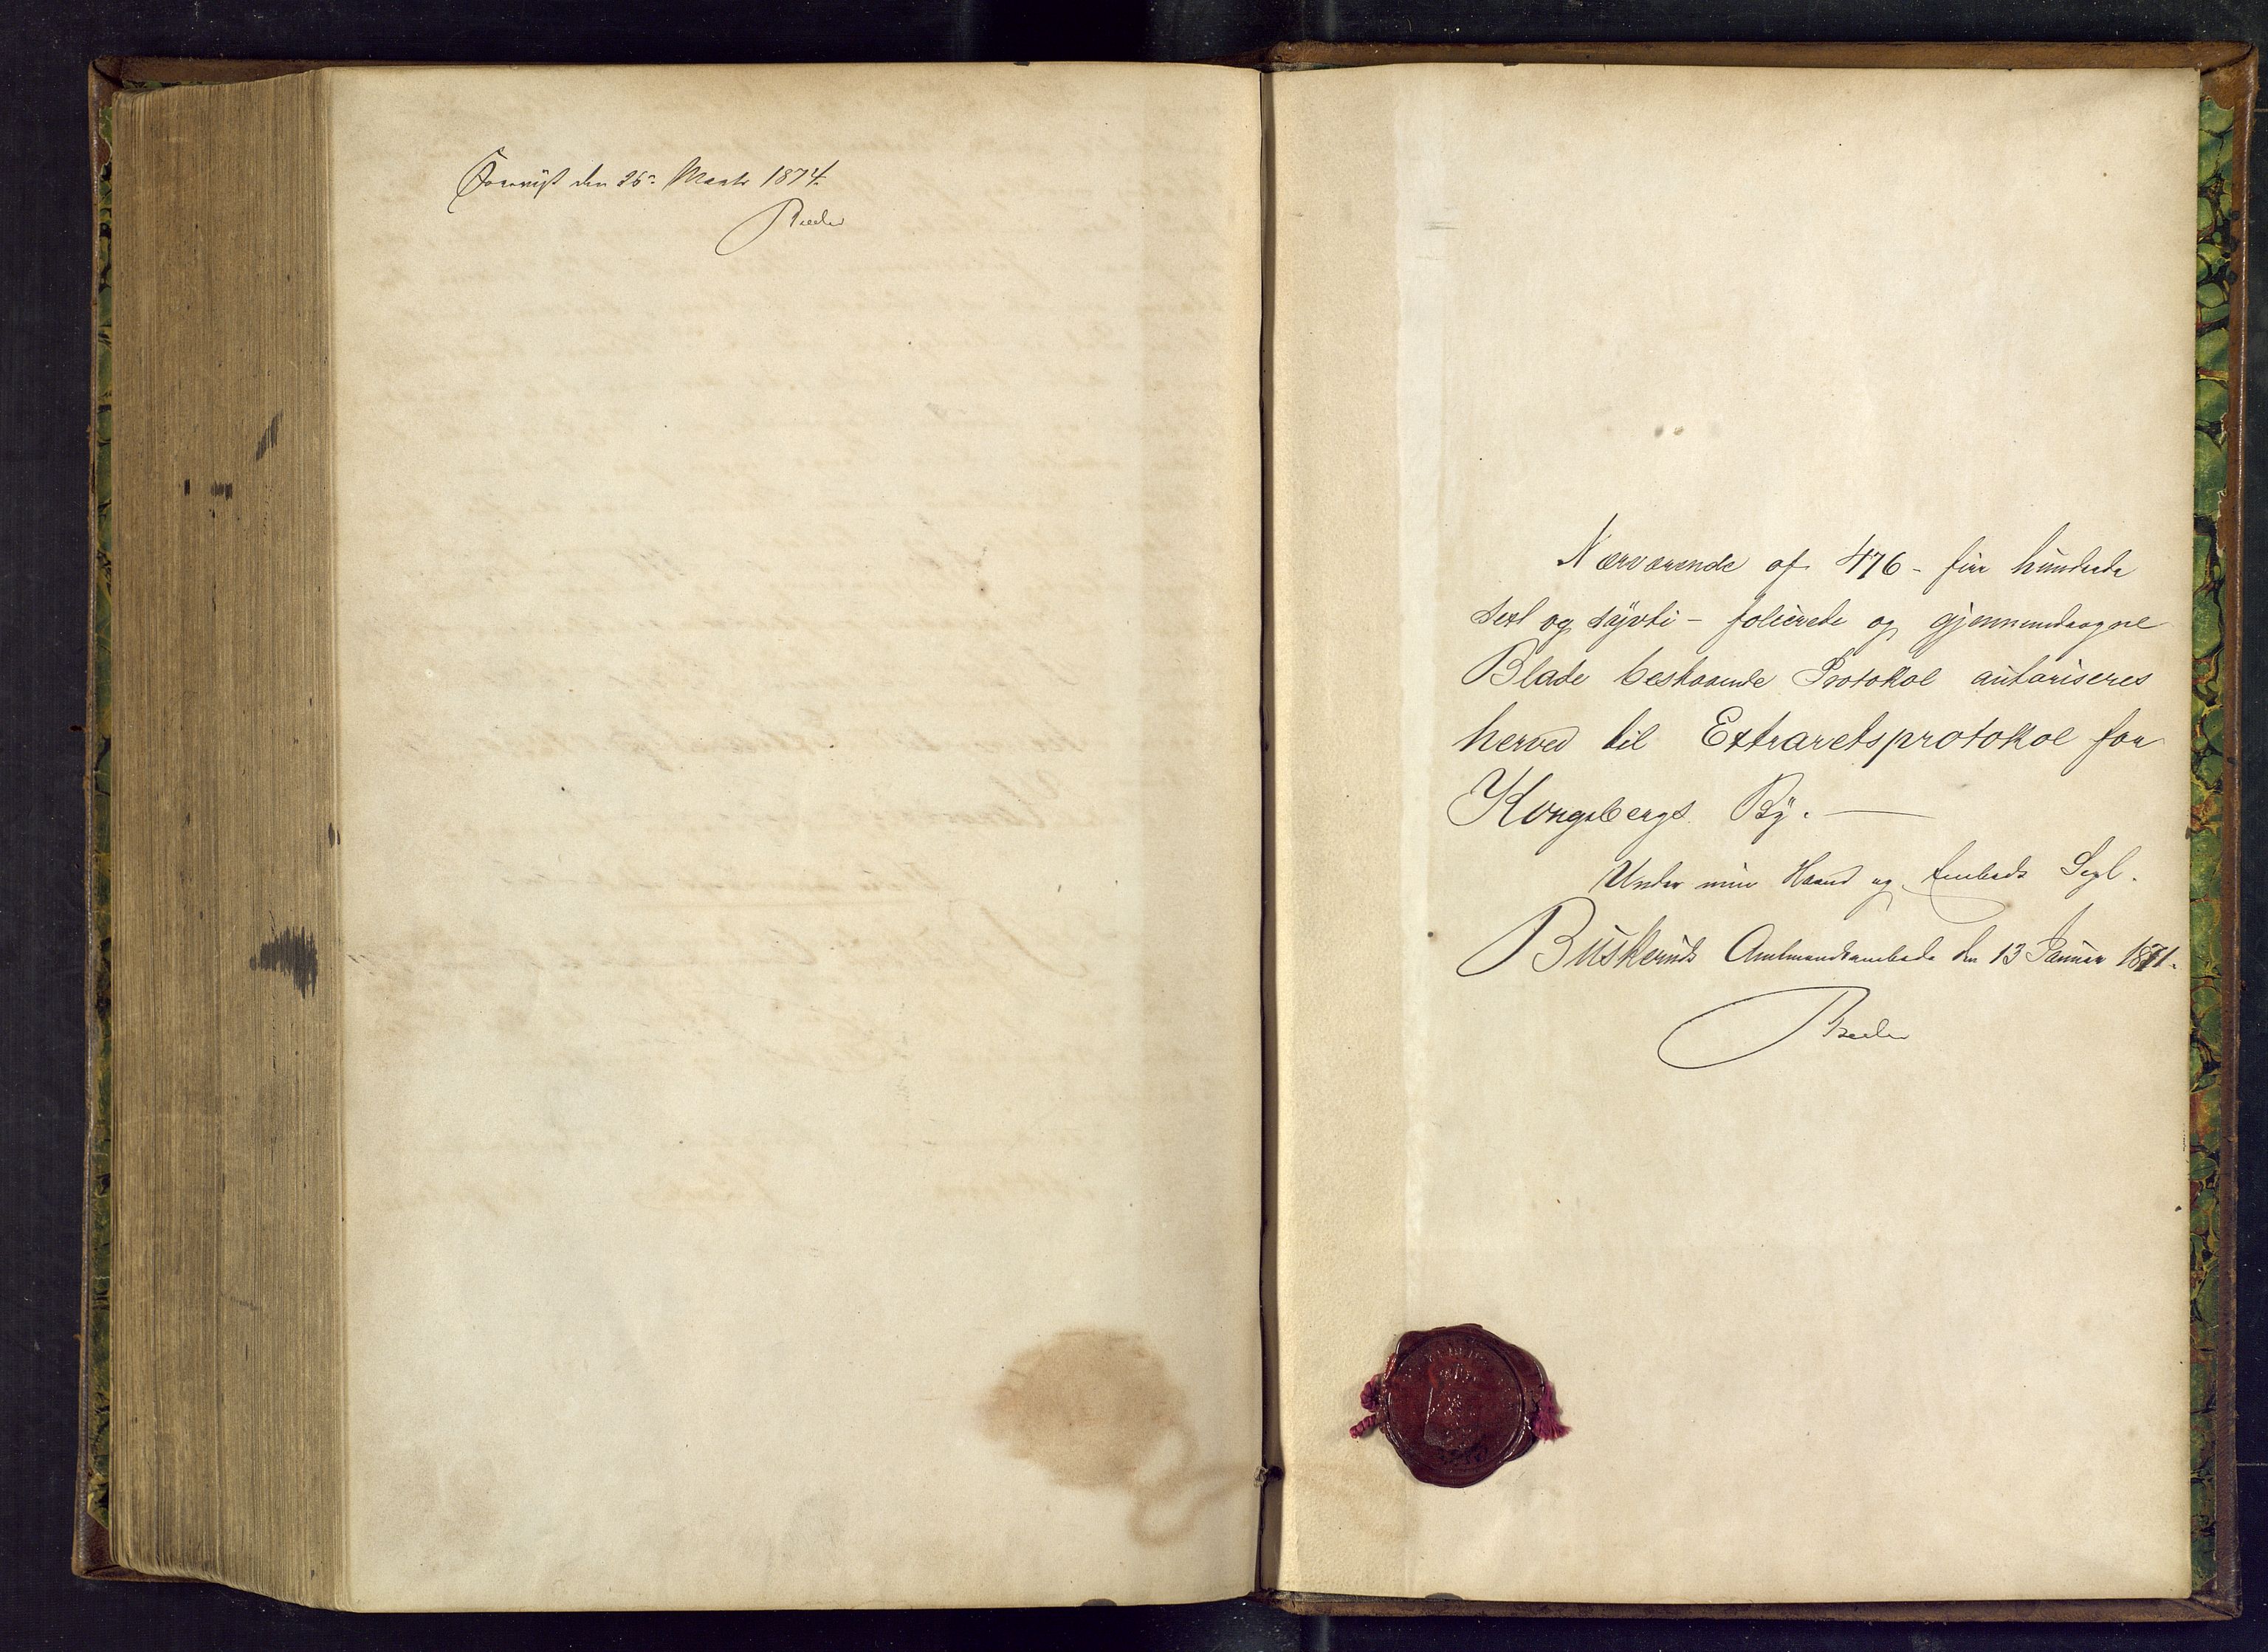 Foreviist den 26de Marts 1874.
Breder
Nærværende af 476 - fire hundrede
sext og syvti - folierede og gjennemdragne
Blade bestaaende Protokol autoriseres
herved til Extraretsprotokol for
Kongsbergs By. —
Under min Haand og Embeds Segl.
Buskeruds Amtmandsembede den 13 Januar 1871.
Breder